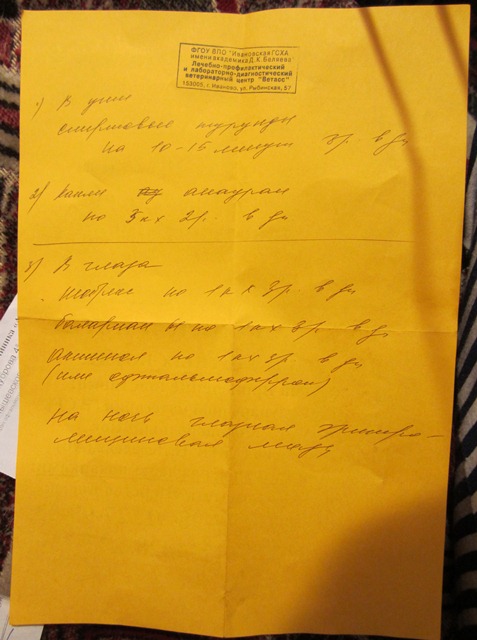 ФГОУ ВПО "Ивановская ГСХА
имени академика Д.К. Беляева"
Лечебно-профилактический
и лабораторно-диагностический
ветеринарный центр "Ветасс"
153003, г. Иваново, ул. Рыбинская, 57
1) В уши
спиртовые турунды
на 10-15 минут 3р. в дн
2) капли анауран
по 3к х 2р. в дн
3) В глаза
по 1к х 3р. в дн
баларпан по 1к х 3р. в дн
по 1к х 3р. в дн
(или офтальмоферон)
на ночь глазная эритро-
мициновая мазь